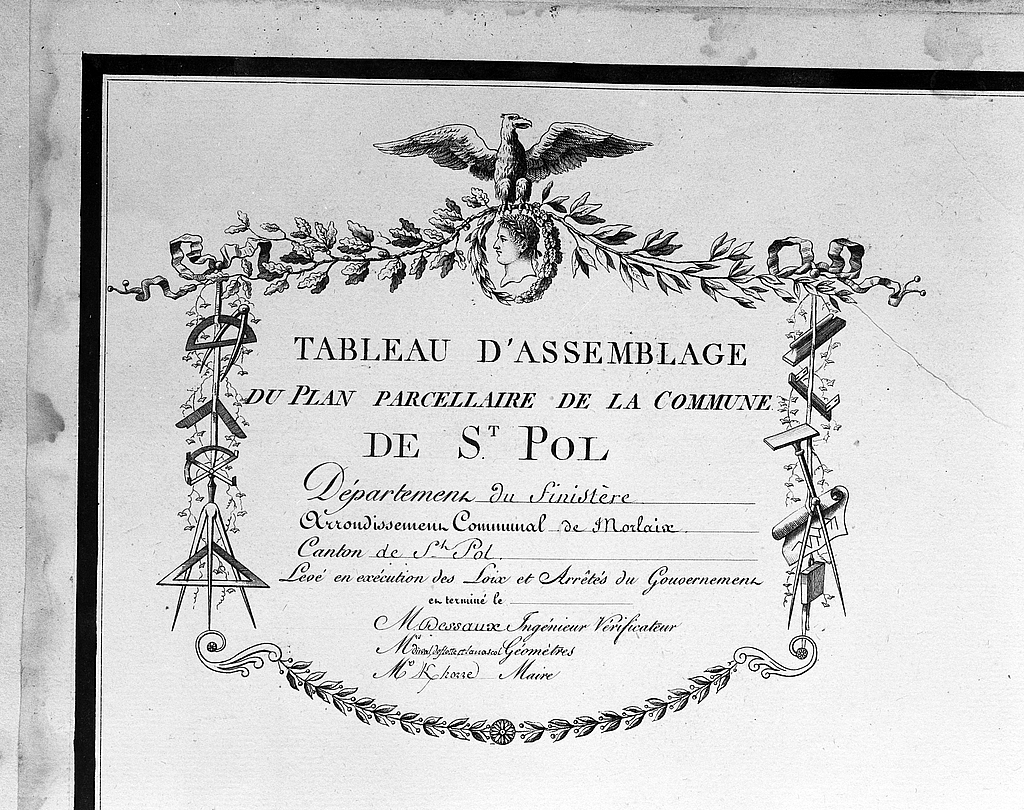 TABLEAU D'ASSEMBLAGE
DU PLAN PARCELLAIRE DE LA COMMUNE
DE S.T POL
Département du Finistère
Arrondissement Communal de Morlaix.
Canton de St. Pol.
Levé en exécution des Loix et Arrêtés du Gouvernement
et terminé le
M. Dessaux Ingénieur Vérificateur
Mrs Géomètres
Mr Maire